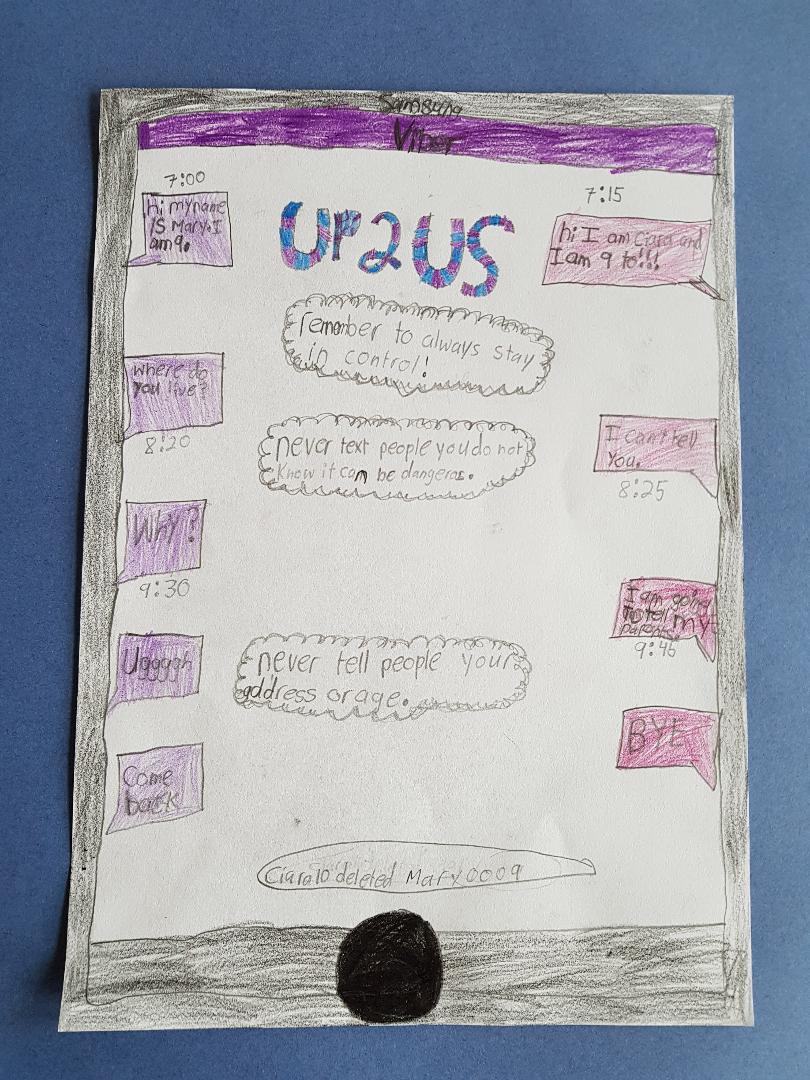 Samsung
Viber
7:00
hi my name
is Mary. I
am 9.
7:15
hi I am Ciara and
I am 9 to!!!
UP2US
remember to always stay
in control!
where do
you live?
8:20
never text people you do not
Know it can be dangeros.
I can't tell
you.
8:25
Why?
9:30
I am going
to tell my
parents
9:46
Uggggh
never tell people your
address or age.
BYE
Come
back
Ciara10 deleted Mary0009